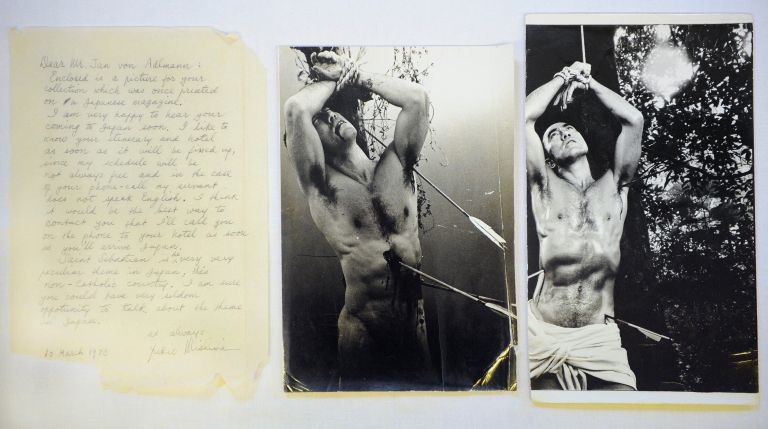 Dear Mr. Jan von Adlmann :
Enclosed is a picture for your
collection which was once printed
on a Japanese magazine.
I am very happy to hear your
coming to Japan soon. I like to
know your itinerary and hotel
as soon as it will be fixed up,
since my schedule will be
not always free and in the case
of your phone-call my servant
does not speak English. I think
it would be the best way to
contact you that I'll call you
on the phone to your hotel as soon
as you'll arrive Japan.
Saint Sebastian is the very very
peculiar theme in Japan, this
non-Catholic country. I am sure
you could have very seldom
opportunity to talk about the theme
in Japan.
as always
Yukio Mishima
March 1970